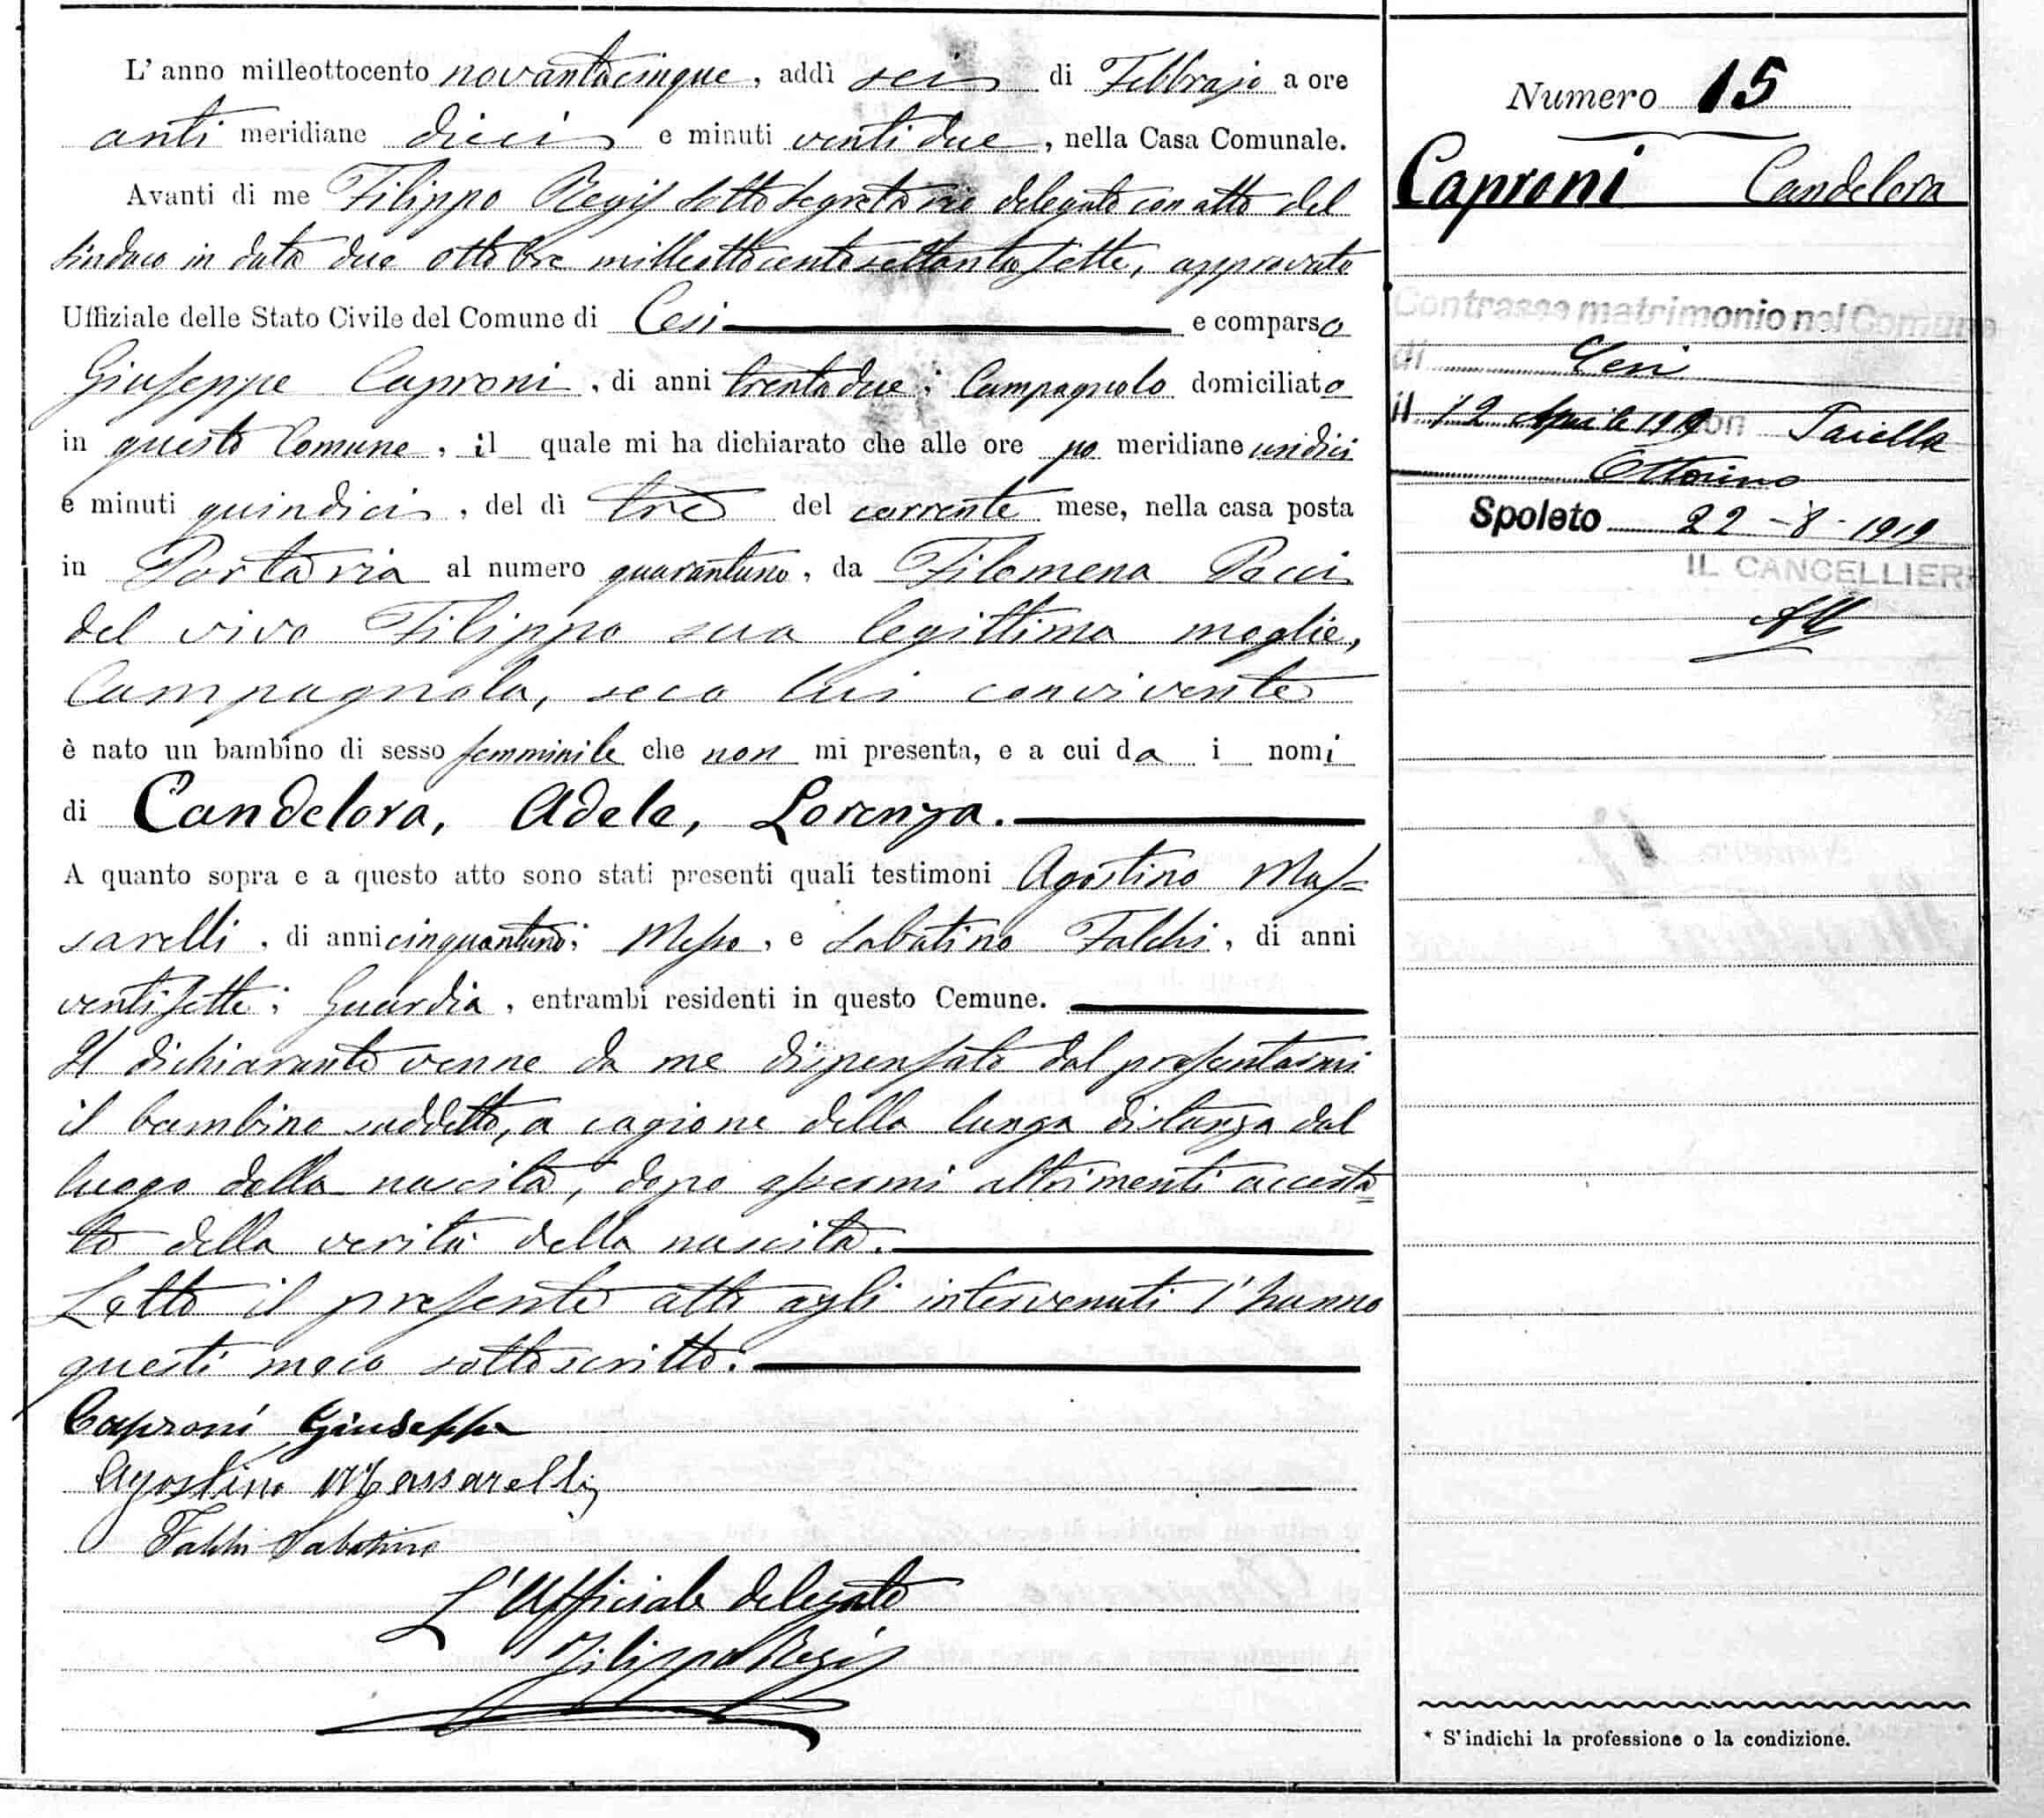 L' anno milleottocento novantacinque, addì sei di Febbrajo a ore
anti meridiane dieci e minuti ventidue, nella Casa Comunale.
Avanti di me Filippo Regis sottosegretario delegato con atto del
sindaco in data due ottobre milleottocentosettantasette, approvato
Uffiziale delle Stato Civile del Comune di Cesi e comparso
Giuseppe Caproni, di anni trentadue; Campagnolo domiciliato
in questo Comune, il quale mi ha dichiarato che alle ore po meridiane undici
e minuti quindici, del dì tre del corrente mese, nella casa posta
in Portaria al numero quarantuno, da Filomena Pacci
del vivo Filippo sua legittima moglie,
Campagnola, seco lui convivente
è nato un bambino di sesso femminile che non mi presenta, e a cui da i nomi
di Candelora, Adele, Lorenza.
A quanto sopra e a questo atto sono stati presenti quali testimoni Agostino Mas-
sarelli, di anni cinquantuno; Messo, e Sabatino Falchi, di anni
ventisette; Guardia, entrambi residenti in questo Cemune.
Il dichiarante venne da me dispensato dal presentarmi
il bambino suddetto, a cagione della lunga distanza dal
luogo della nascita, dopo essermi altrimenti accerta=
to della verità della nascita.
Letto il presente atto agli intervenuti l'hanno
questi meco sottoscritto.
Caproni Giuseppe
Agostino Massarelli
Falchi Sabatino
L'Ufficiale delegato
Filippo Regis
Numero 15
Caproni Candelora
Contrasse matrimonio nel Comune
di Cesi
il 12 Aprile 1919 con
Ottorino
Spoleto 22-8-1919
IL CANCELLIERE
* S'indichi la professione o la condizione.